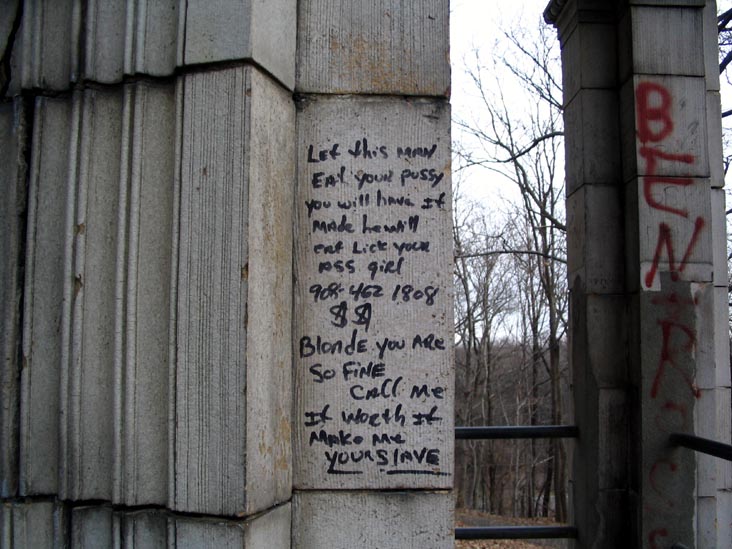 Let this MAN
EAt your pussy
you will have It
MADe he will
eat Lick your
ASS girl
908-462 1808
$$
Blonde you ARe
So FiNE
CAll Me
It Worth It
MAKe Me
your SlAVE
BENiRocs